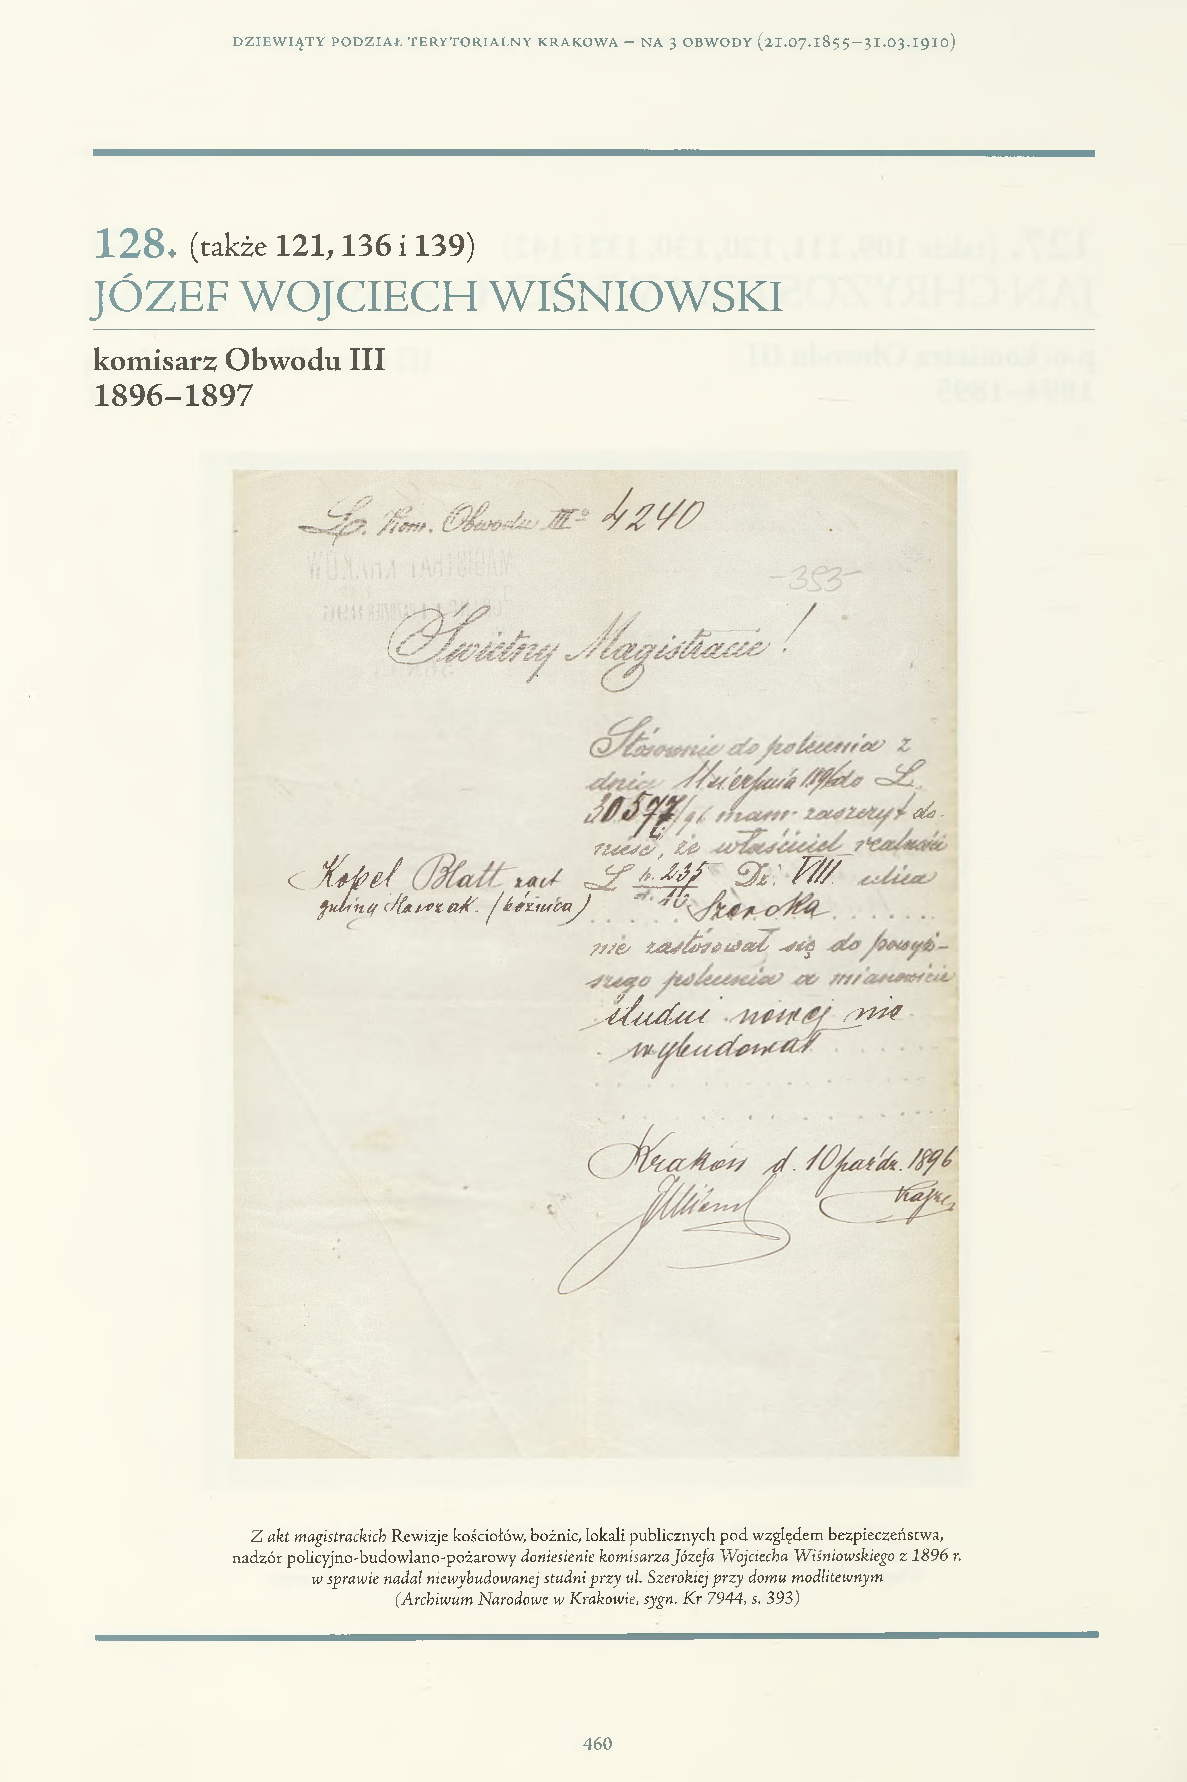 DZIEWIĄTY PODZIAŁ TERYTORIALNY KRAKOWA – NA 3 OBWODY (21.07.1855–31.03.1910)
128. (także 121, 136 i 139)
JÓZEF WOJCIECH WIŚNIOWSKI
komisarz Obwodu III
1896–1897
Lp. Kom. Obwodu III° 4240
-393-
Świetny Magistracie!
Stósownie do polecenia z
dnia 11 sierpnia 1896 do L.
30577/96 mam zaszczyt do-
nieść, że właściciel realności
Kopel Blatt L 235 Dz. VIII ulica
gminy (bóżnica) Szeroka
nie zastósował się do powyż-
szego polecenia a mianowicie
studni nowej nie
wybudował
Kraków d. 10 paźdz. 1896
Z akt magistrackich Rewizje kościołów, bożnic, lokali publicznych pod względem bezpieczeństwa,
nadzór policyjno-budowlano-pożarowy doniesienie komisarza Józefa Wojciecha Wiśniowskiego z 1896 r.
w sprawie nadal niewybudowanej studni przy ul. Szerokiej przy domu modlitewnym
(Archiwum Narodowe w Krakowie, sygn. Kr 7944, s. 393)
460